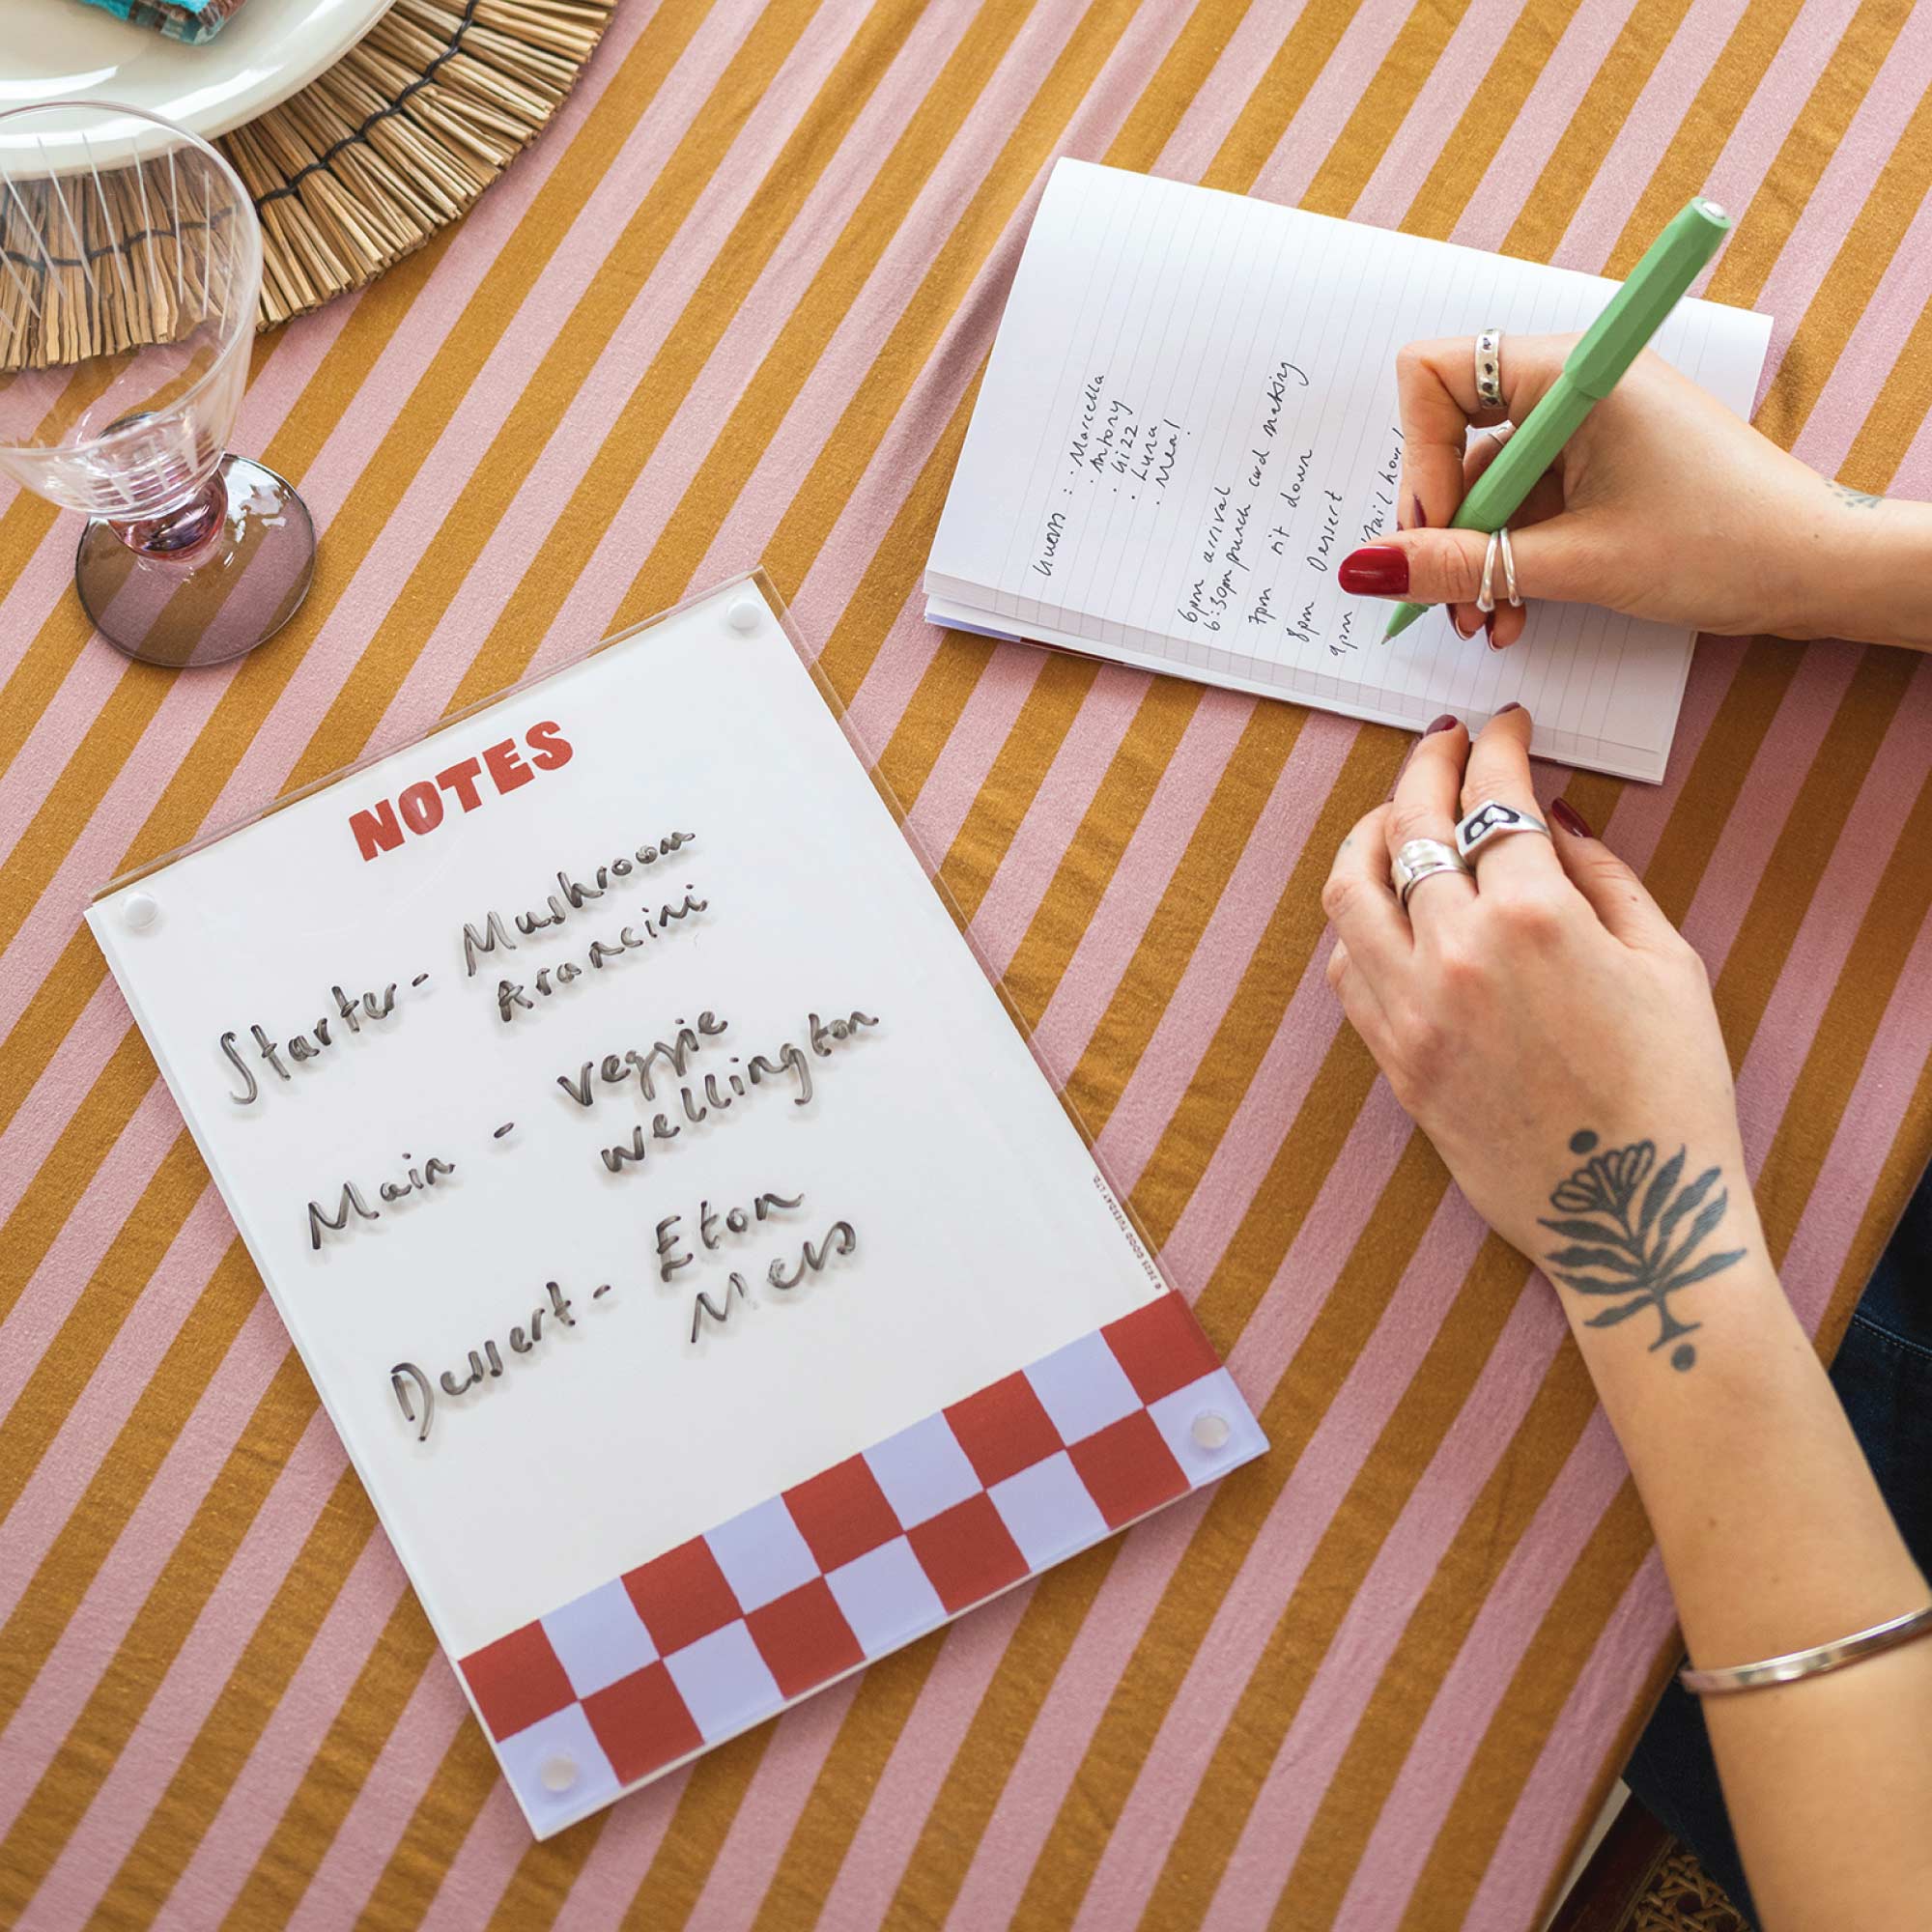 NOTES
Starter - Mushroom
Arancini
Main - veggie
wellington
Dessert - Eton
Mess
© 2025 GOOD TUESDAY LTD.
Guests : · Marcella
· Antony
· Gizz
· Luna
· Neal
6pm arrival
6:30pm punch card making
7pm sit down
8pm Dessert
9pm